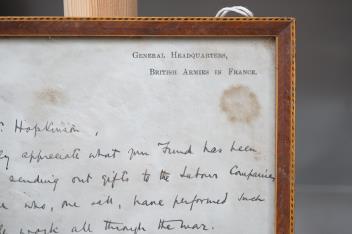 General Headquarters,
British Armies in France.
Hopkinson,
appreciate what your Fund has been
sending out gifts to the Labour Companies
who, one & all, have performed such
work all through the war.